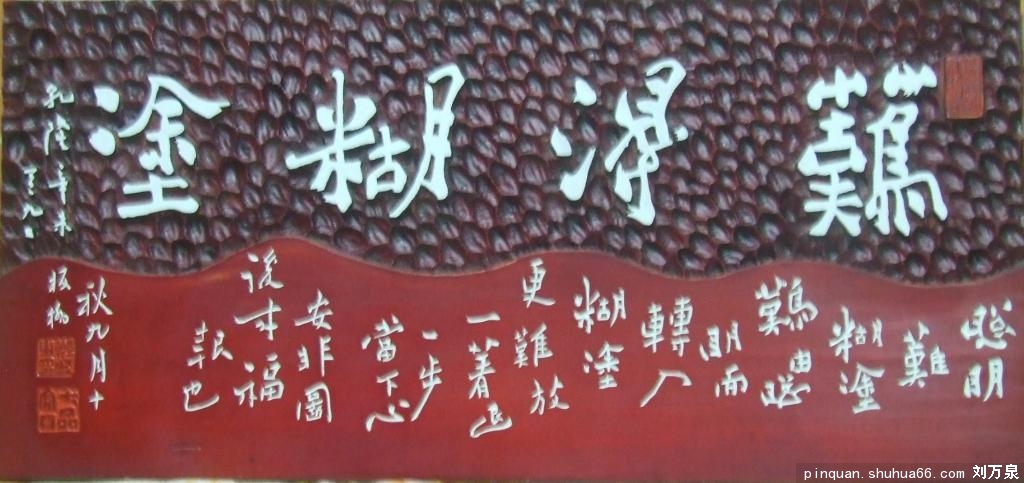 難得糊塗
聰明
難
糊塗
難由聰
明而
轉入
糊塗
更難放
一著退
一步
當下心
安非圖
後來福
報也
乾隆辛未
秋九月十
有九日
板橋
七品官耳
pinquan.shuhua66.com 刘万泉